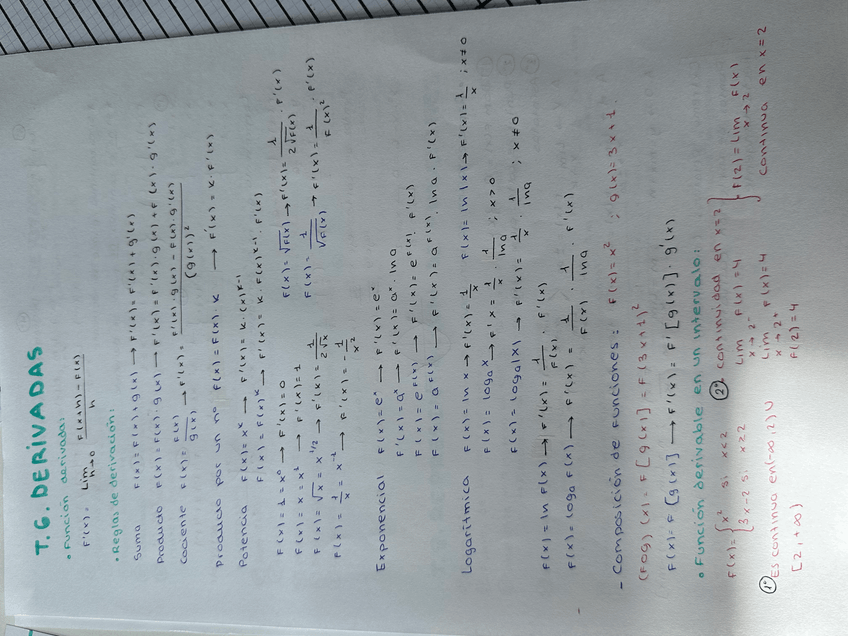 T.6. DERIVADAS
• Función derivada:
F'(x) = Lim h→0 F(x+h) - F(x) / h
• Reglas de derivación:
Suma F(x) = F(x) + g(x) → F'(x) = F'(x) + g'(x)
Producto F(x) = F(x) · g(x) → F'(x) = F'(x) · g(x) + F(x) · g'(x)
Cociente F(x) = F(x) / g(x) → F'(x) = F'(x) · g(x) - F(x) · g'(x) / (g(x))²
Producto por un nº F(x) = F(x) · K → F'(x) = K · F'(x)
Potencia F(x) = x^K → F'(x) = K · (x)^K-1
F(x) = F(x)^K → F'(x) = K · F(x)^K-1 · F'(x)
F(x) = 1 = x⁰ → F'(x) = 0
F(x) = x = x¹ → F'(x) = 1
F(x) = √x = x^1/2 → F'(x) = 1 / 2√x F(x) = √F(x) → F'(x) = 1 / 2√F(x) · F'(x)
F(x) = 1/x = x⁻¹ → F'(x) = - 1/x² F(x) = 1 / √F(x) → F'(x) = 1 / F(x)² · F'(x)
Exponencial F(x) = e^x → F'(x) = e^x
F'(x) = a^x → F'(x) = a^x · lna
F(x) = e^F(x) → F'(x) = e^F(x) · F'(x)
F(x) = a^F(x) → F'(x) = a^F(x) · lna · F'(x)
Logarítmica F(x) = ln x → F'(x) = 1/x F(x) = ln |x| → F'(x) = 1/x ; x≠0
F(x) = loga x → F'x = 1/x · 1/lna ; x>0
F(x) = loga |x| → F'(x) = 1/x · 1/lna ; x≠0
F(x) = ln F(x) → F'(x) = 1/F(x) · F'(x)
F(x) = loga F(x) → F'(x) = 1/F(x) · 1/lna · F'(x)
- Composición de funciones: F(x) = x² ; g(x) = 3x+1.
(Fog) (x) = F [g(x)] = F (3x+1)²
F(x) = F [g(x)] → F'(x) = F' [g(x)] · g'(x)
• Función derivable en un intervalo:
F(x) = { x² si x<2
3x-2 si x≥2
1º Es continua en (-∞, 2) U
[2, +∞)
2º continuidad en x=2
Lim x→2⁻ F(x) = 4
Lim x→2+ F(x) = 4
F(2) = 4
} F(2) = Lim x→2 F(x)
continua en x=2